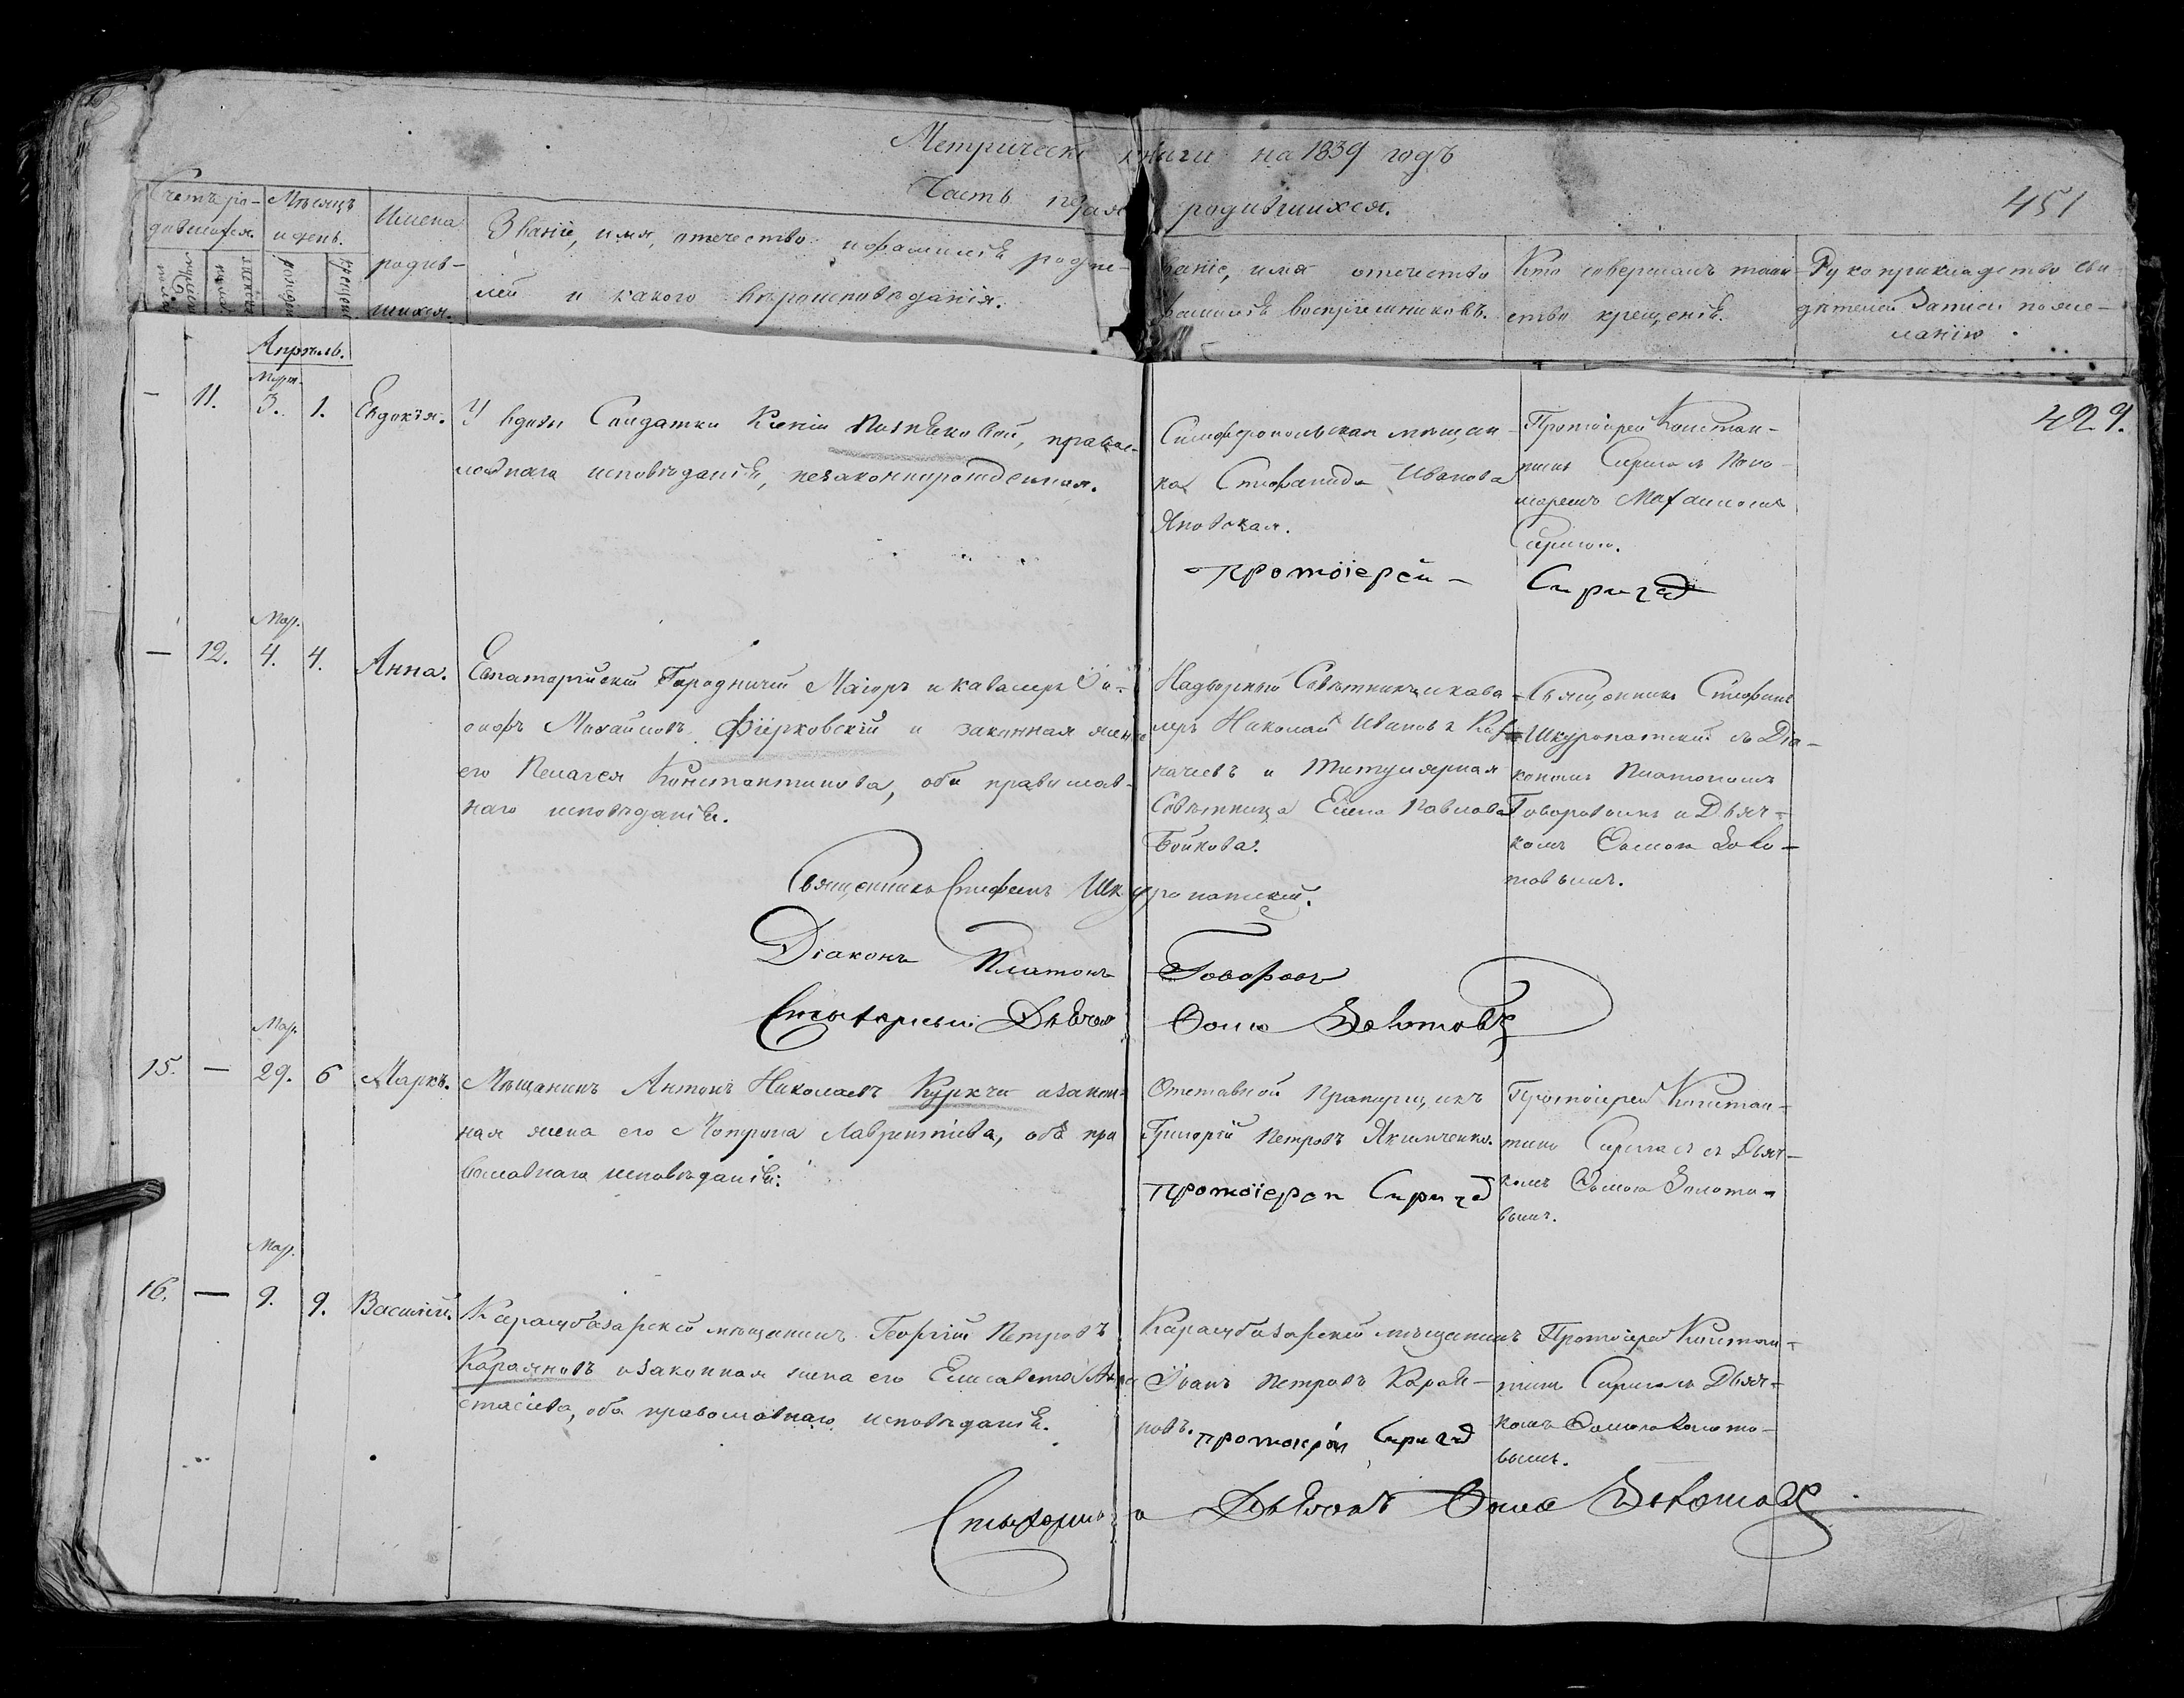 Метрическ книги на 1839 годъ
Часть пе рая родившихся.
451
Счетъ ро-
дившихся.
Мѣсяцъ
и день.
Имена
родив-
шихся.
Званіе, имя, отечество и фамилія родите-
лей и какого вѣроисповѣданія.
Званіе, имя отечество
фамилія воспріемниковъ.
Кто совершалъ таин-
ство крещенія.
Рукоприкладство сви-
дѣтелей записи по же-
ланію
мужеска
пола
женска
пола
рожден
крещен
Апрѣль.
429.
Март.
— 11. 3. 1. Евдокія.
У вдовы Солдатки Ксеніи православ-
ославнаго исповѣданія, незаконнорожденная.
Симферопольская мѣщан-
ка Стефанида Иванова
Яновская.
Протоіерей Констан-
тинъ Сиригосъ Поно-
маремъ Михаиломъ
Протоіерей — Сиригос
Мар.
— 12. 4. 4. Анна.
Евпаторійскій Городничій Маіоръ и кавалеръ Іо-
сифъ Михайловъ Фіерковскій и законная жена
его Пелагея Константинова, оба православ-
наго исповѣданія.
Надворный Совѣтникъ и кава-
леръ Николай Ивановъ
качевъ и Титулярная
Совѣтница Елена Павлова
Бойкова.
Священникъ Стефанъ
Шкуропатскій съ Діа-
кономъ Платономъ
Говоровымъ и Дьяч-
комъ Ѳомою Золо-
товымъ.
Священникъ Стефанъ Шкуропатскій.
Діаконъ Платонъ Говоровъ
Стихарный Дьячокъ Ѳома Золотовъ
Мар.
15. — 29. 6 Маркъ.
Мѣщанинъ Антонъ Николаевъ Куркчи и закон-
ная жена его Матрона Лаврентіева, оба пра
вославнаго исповѣданія.
Отставной Прапорщикъ
Григорій Петровъ Якимченко.
Протоіерей Констан-
тинъ Сиригосъ съ Дьяч-
комъ Ѳомою Золото-
вымъ.
Протоіерей Сиригос
Мар.
16. — 9. 9. Василій.
Карасубазарскій мѣщанинъ Георгій Петровъ
Караяновъ и законная жена его Елисавета Ана
стасіева, оба православнаго исповѣданія.
Карасубазарскій мѣщанинъ
Іоанъ Петровъ Карая-
новъ.
Протоіерей Констан-
тинъ Сиригосъ Дьяч-
комъ Ѳомою Золото-
вымъ.
протоіерей Сиригос
Стихарный Дьячокъ Ѳома Золотовъ